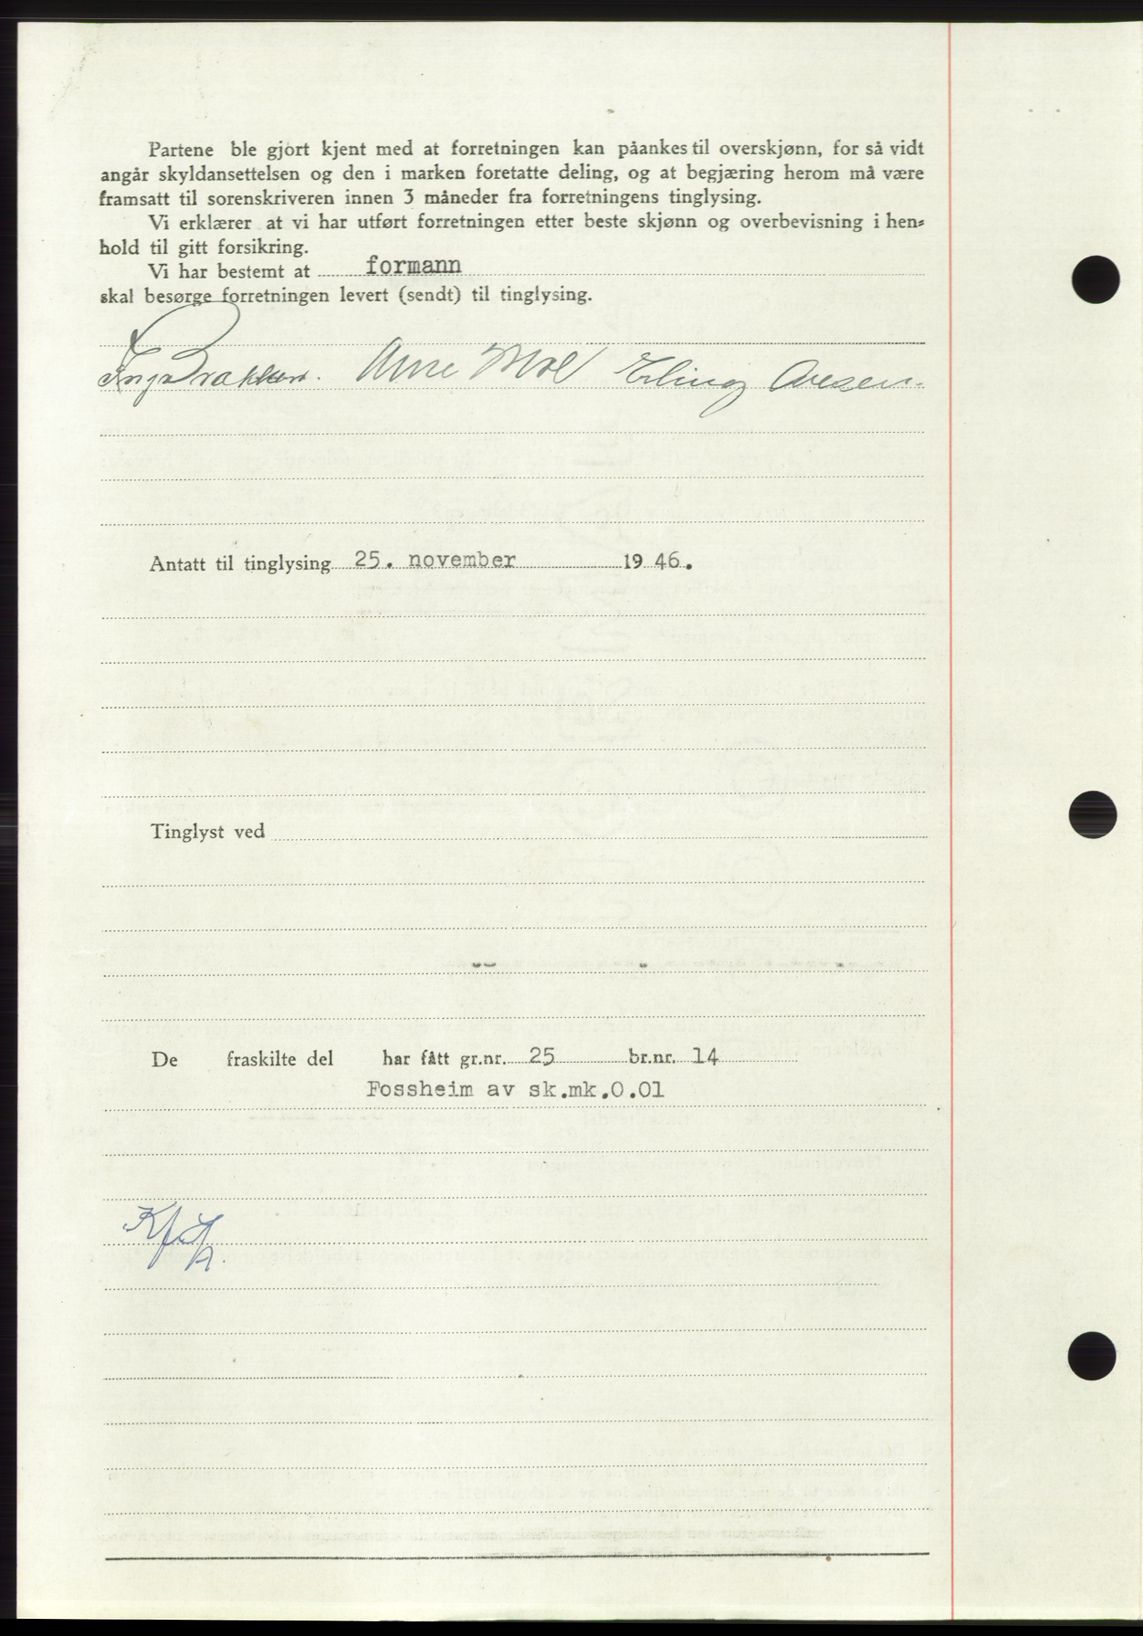 Partene ble gjort kjent med at forretningen kan påankes til overskjønn, for så vidt
angår skyldansettelsen og den i marken foretatte deling, og at begjæring herom må være
framsatt til sorenskriveren innen 3 måneder fra forretningens tinglysing.
Vi erklærer at vi har utført forretningen etter beste skjønn og overbevisning i hen-
hold til gitt forsikring.
Vi har bestemt at formann
skal besørge forretningen levert (sendt) til tinglysing.
Arne Moe Erling Aresen.
Antatt til tinglysing 25. november 1946.
Tinglyst ved
De fraskilte del har fått gr.nr. 25 br.nr. 14
Fossheim av sk.mk.0.01